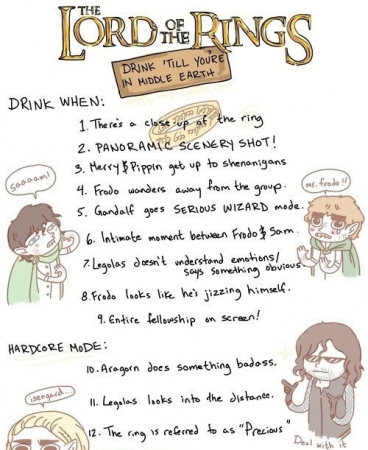 THE
LORD OF THE RINGS
DRINK 'TILL YOU'RE
IN MIDDLE EARTH
DRINK WHEN:
1. There's a close-up of the ring
2. PANORAMIC SCENERY SHOT!
3. Merry & Pippin get up to shenanigans
saaaam!
4. Frodo wanders away from the group.
mr. frodo!!
5. Gandalf goes SERIOUS WIZARD mode.
6. Intimate moment between Frodo & Sam.
7. Legolas doesn't understand emotions/
says something obvious
8. Frodo looks like he's jizzing himself.
9. Entire fellowship on screen!
HARDCORE MODE:
10. Aragorn does something badass.
isengard...
11. Legolas looks into the distance.
12. The ring is referred to as "Precious"
Deal with it